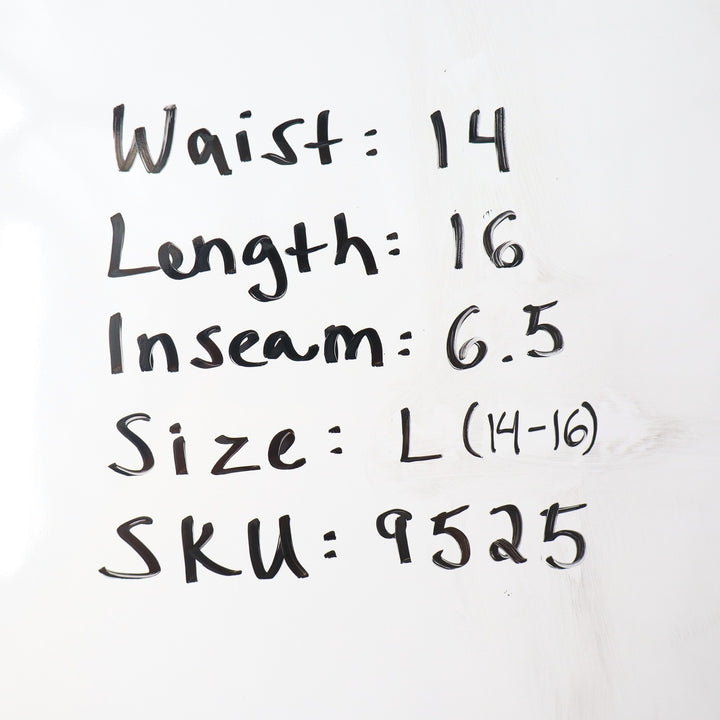 Waist: 14
Length: 16
Inseam: 6.5
Size: L (14-16)
SKU: 9525